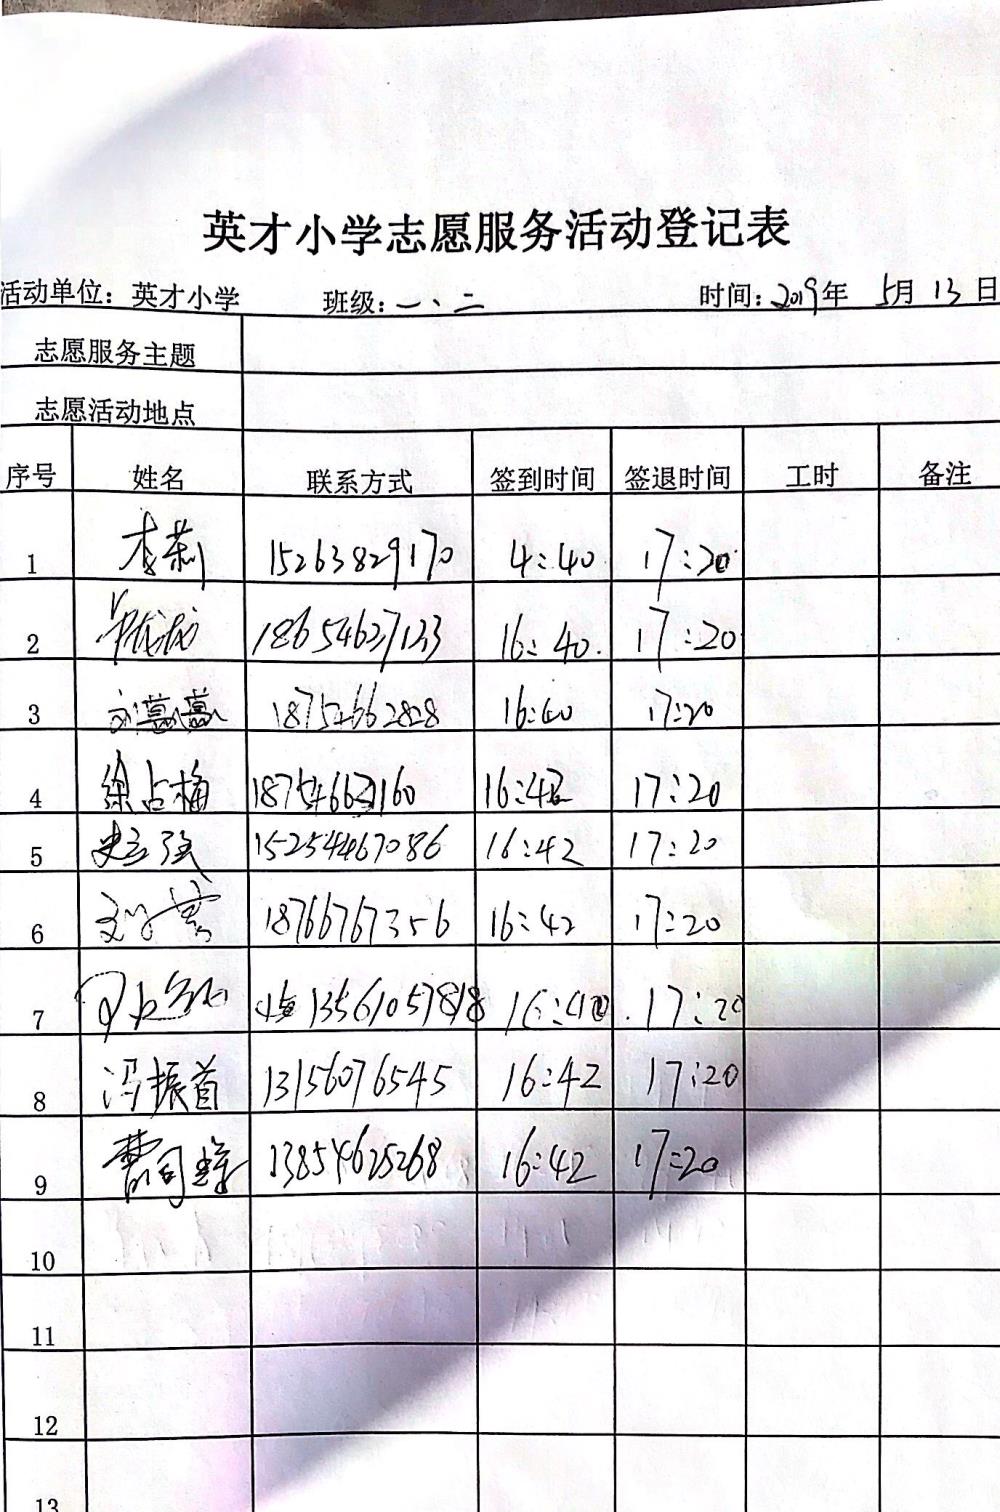 英才小学志愿服务活动登记表
活动单位：英才小学 班级：一、二 时间：2019年 5月 13日
志愿服务主题
志愿活动地点
序号 姓名 联系方式 签到时间 签退时间 工时 备注
1 李莉 15263829170 4:40 17:20
2 18654627133 16:40. 17:20
3 18752662828 16:40 17:20
4 徐占梅 16:42 17:20
5 15254467086 16:42 17:20
6 18766767356 16:42 17:20
7 13561057818 17:20
8 冯振首 13156076545 16:42 17:20
9 13854625268 16:42 17:20
10
11
12
13